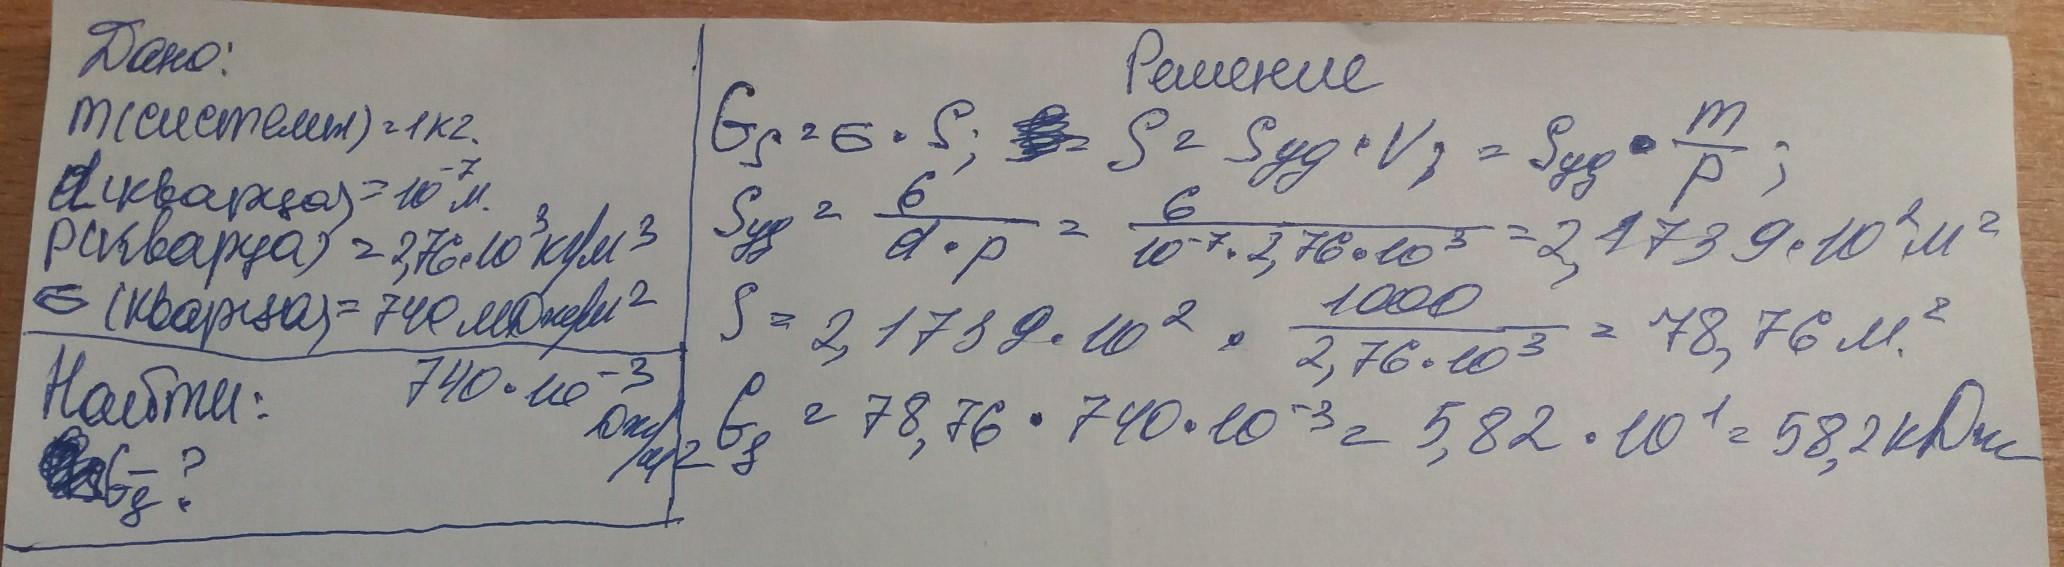 Дано:
m(системы)=1кг.
d(кварца)=10⁻⁷м.
ρ(кварца)=2,76·10³кг/м³
σ(кварца)=740мДж/м²
740·10⁻³
Дж/м²
Найти:
Gs-?
Решение
Gs=σ·S; S=Sуд·V; =Sуд·m/ρ;
Sуд=6/d·ρ=6/10⁻⁷·2,76·10³=2,1739·10²м²
S=2,1739·10²·1000/2,76·10³=78,76м².
Gs=78,76·740·10⁻³=5,82·10¹=58,2кДж